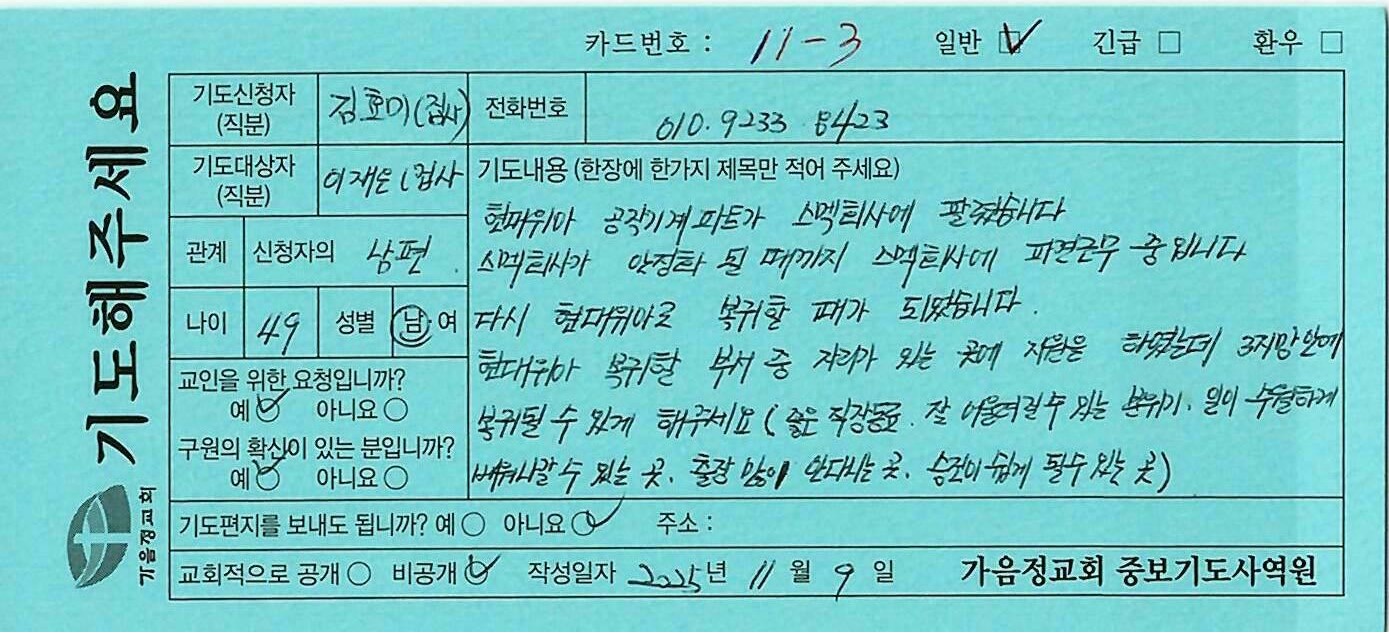 카드번호 : 11-3 일반 ☑ 긴급 □ 환우 □
기도해주세요
기도신청자 (직분) 김효미(집사) 전화번호 010.9233.8423
기도대상자 (직분) 이재은(집사
기도내용 (한장에 한가지 제목만 적어 주세요)
현대위아 공작기계파트가 스멕회사에 팔렸습니다
관계 신청자의 남편
스멕회사가 안정화 될 때까지 스멕회사에 파견근무 중입니다
나이 49 성별 남·여
다시 현대위아로 복귀할 때가 되었습니다.
현대위아 복귀할 부서 중 자리가 있는 곳에 지원은 하였는데 3지망안에
교인을 위한 요청입니까?
예 ☑ 아니요 ○
복귀될 수 있게 해주세요 (좋은 직장동료. 잘 어울려질수 있는 분위기. 일이 수월하게
구원의 확신이 있는 분입니까?
예 ☑ 아니요 ○
배워나갈 수 있는 곳. 출장 많이 안다니는 곳. 승진이 쉽게 될수 있는 곳)
기도편지를 보내도 됩니까? 예 ○ 아니요 ☑ 주소 :
교회적으로 공개 ○ 비공개 ☑ 작성일자 2025년 11월 9일 가음정교회 중보기도사역원
가음정교회